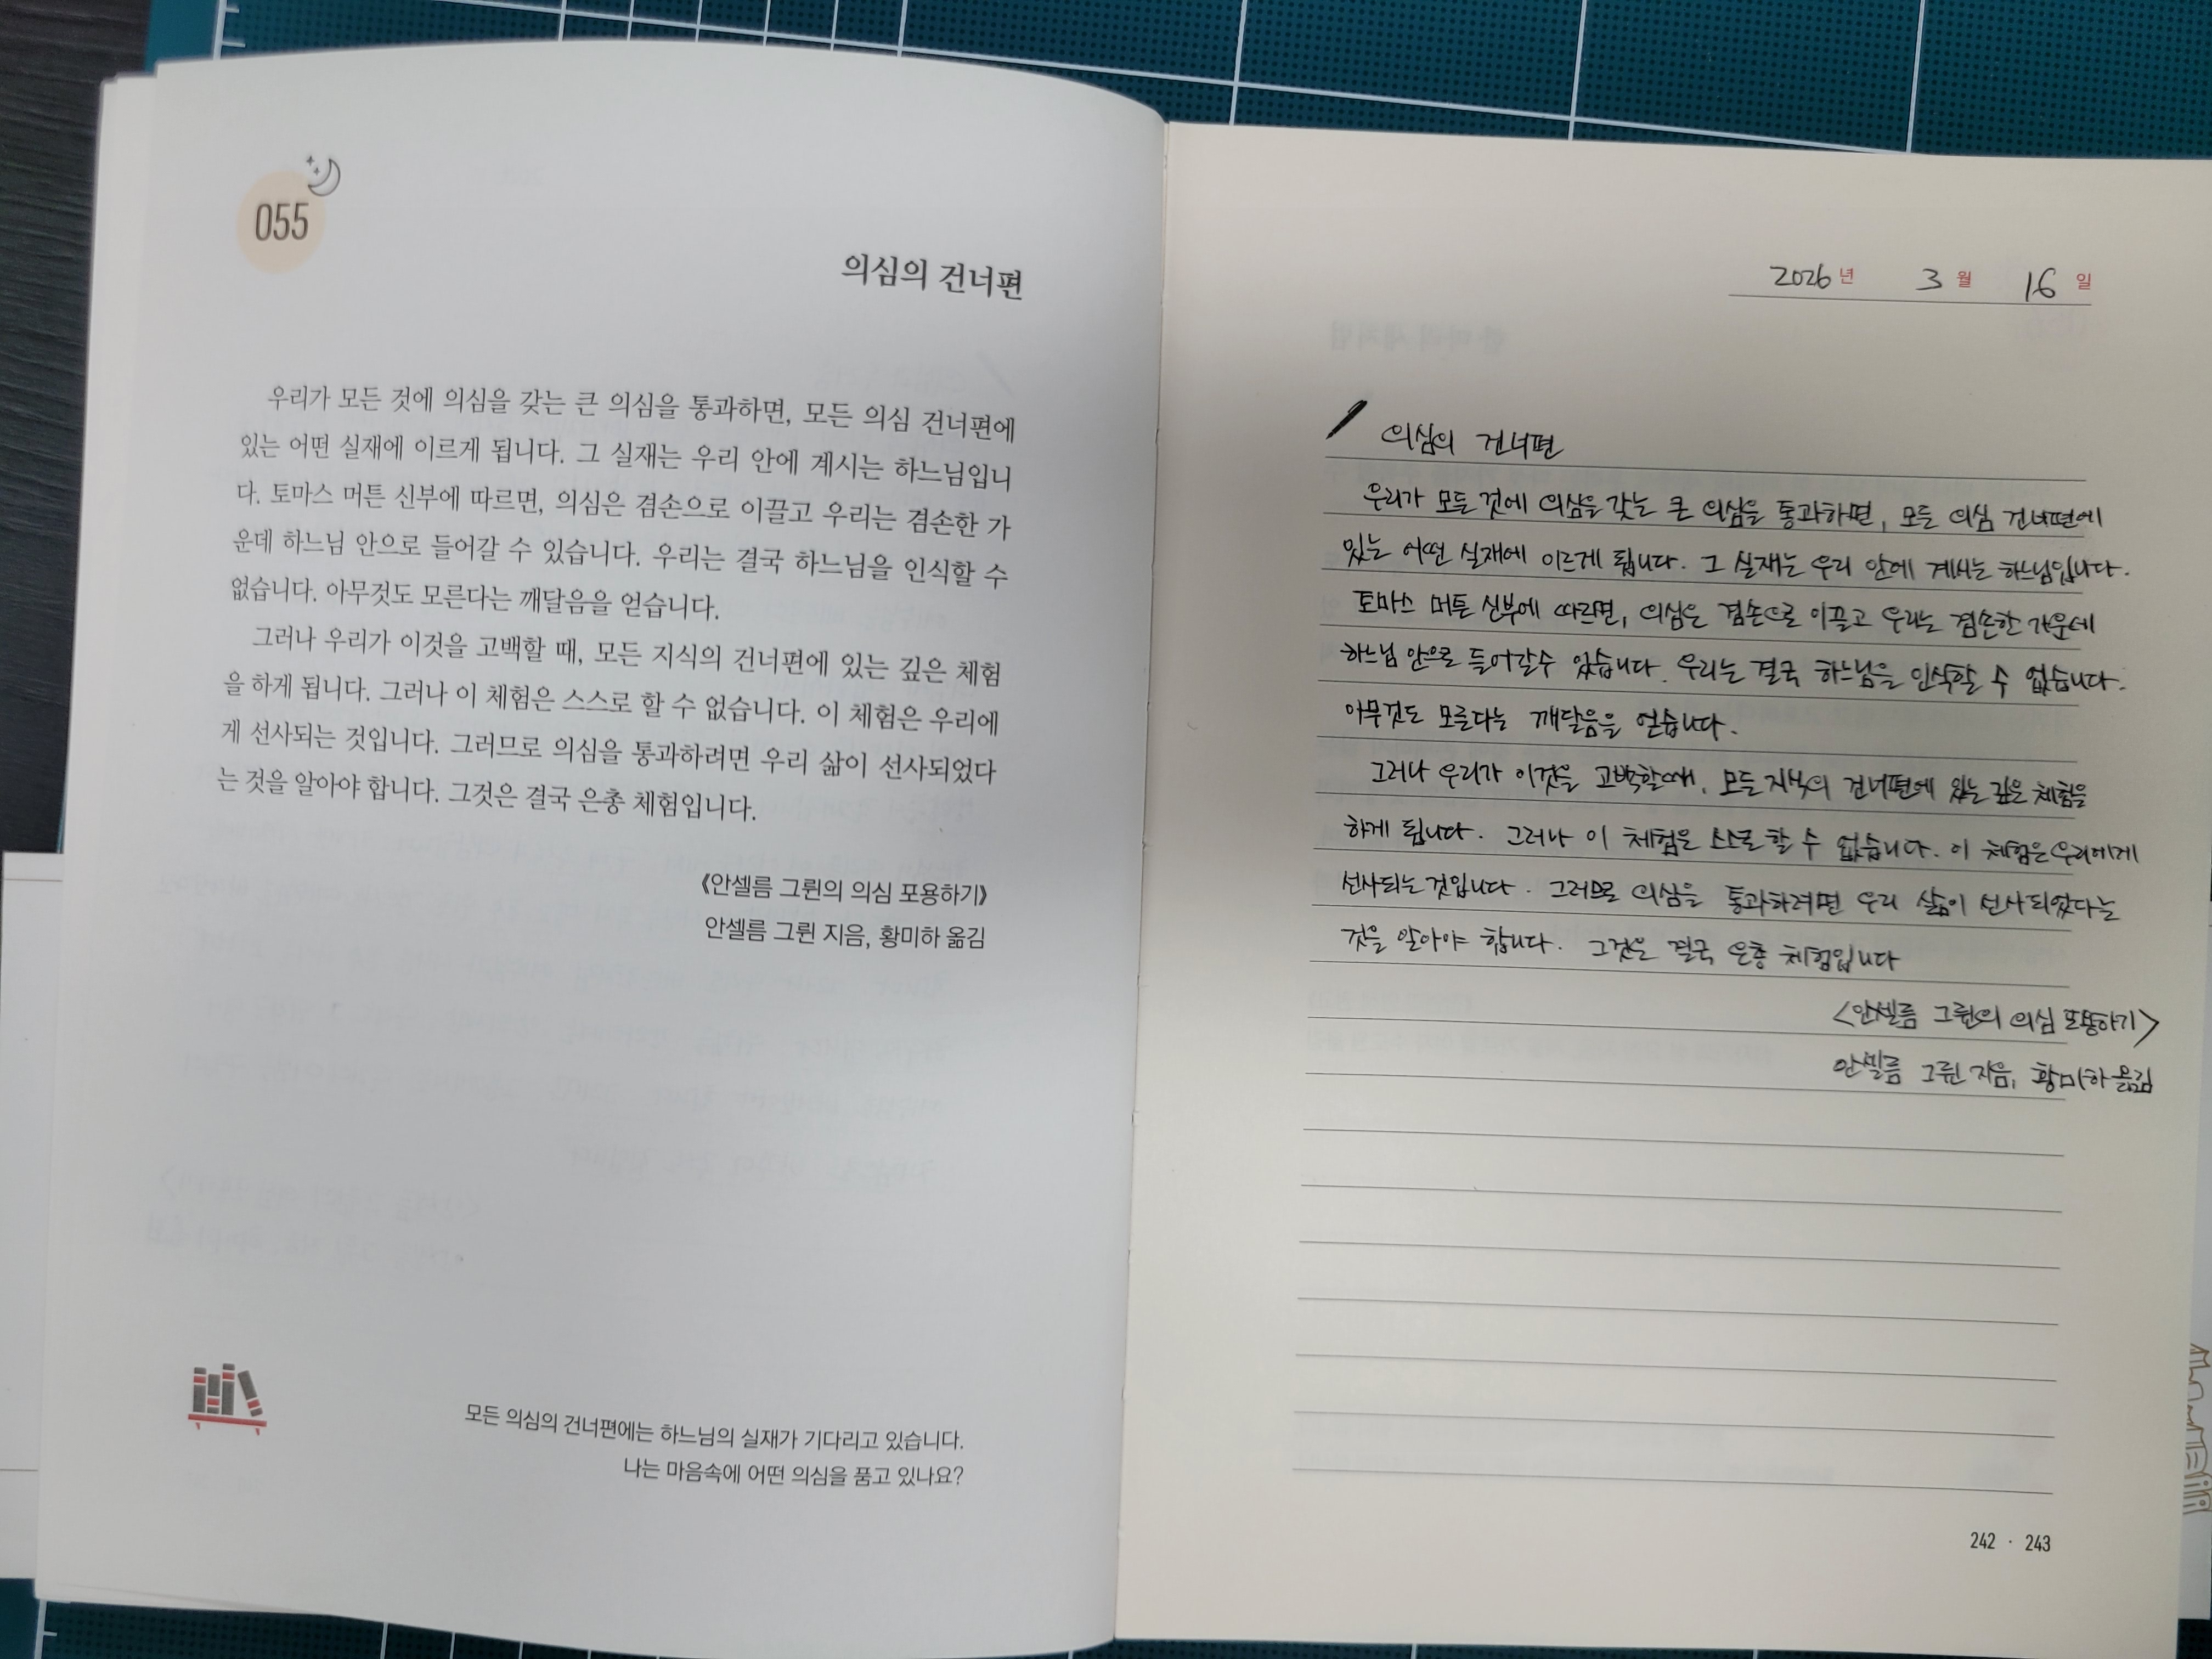 055
의심의 건너편
우리가 모든 것에 의심을 갖는 큰 의심을 통과하면, 모든 의심 건너편에
있는 어떤 실재에 이르게 됩니다. 그 실재는 우리 안에 계시는 하느님입니
다. 토마스 머튼 신부에 따르면, 의심은 겸손으로 이끌고 우리는 겸손한 가
운데 하느님 안으로 들어갈 수 있습니다. 우리는 결국 하느님을 인식할 수
없습니다. 아무것도 모른다는 깨달음을 얻습니다.
그러나 우리가 이것을 고백할 때, 모든 지식의 건너편에 있는 깊은 체험
을 하게 됩니다. 그러나 이 체험은 스스로 할 수 없습니다. 이 체험은 우리에
게 선사되는 것입니다. 그러므로 의심을 통과하려면 우리 삶이 선사되었다
는 것을 알아야 합니다. 그것은 결국 은총 체험입니다.
《안셀름 그륀의 의심 포용하기》
안셀름 그륀 지음, 황미하 옮김
모든 의심의 건너편에는 하느님의 실재가 기다리고 있습니다.
나는 마음속에 어떤 의심을 품고 있나요?
2026년 3월 16일
의심의 건너편
우리가 모든 것에 의심을 갖는 큰 의심을 통과하면, 모든 의심 건너편에
있는 어떤 실재에 이르게 됩니다. 그 실재는 우리 안에 계시는 하느님입니다.
토마스 머튼 신부에 따르면, 의심은 겸손으로 이끌고 우리는 겸손한 가운데
하느님 안으로 들어갈수 있습니다. 우리는 결국 하느님을 인식할 수 없습니다.
아무것도 모른다는 깨달음을 얻습니다.
그러나 우리가 이것을 고백할때, 모든 지식의 건너편에 있는 깊은 체험을
하게 됩니다. 그러나 이 체험은 스스로 할 수 없습니다. 이 체험은 우리에게
선사되는 것입니다. 그러므로 의심을 통과하려면 우리 삶이 선사되었다는
것을 알아야 합니다. 그것은 결국 은총 체험입니다
<안셀름 그륀의 의심 포용하기>
안셀름 그륀 지음, 황미하 옮김
242 · 243